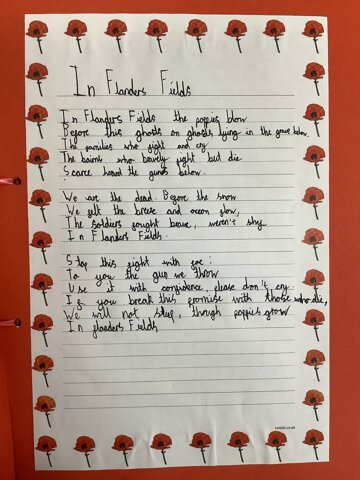 In Flanders Fields
In Flanders Fields the poppies blow
Before this ghosts on ghosts lying in the grave below.
The families who fight and cry
The bairns who bravely fight but die
Scarce heard the guns below.
We are the dead. Before the snow
We felt the breese and ocean flow,
The soldiers fought brave, weren't shy
In Flanders Fields.
Stop this fight with foe:
To you the gun we throw
Use it with confidence, please don't cry.
If you break this promise with those who die,
We will not sleep, though poppies grow
In flanders Fields
twinkl.co.uk